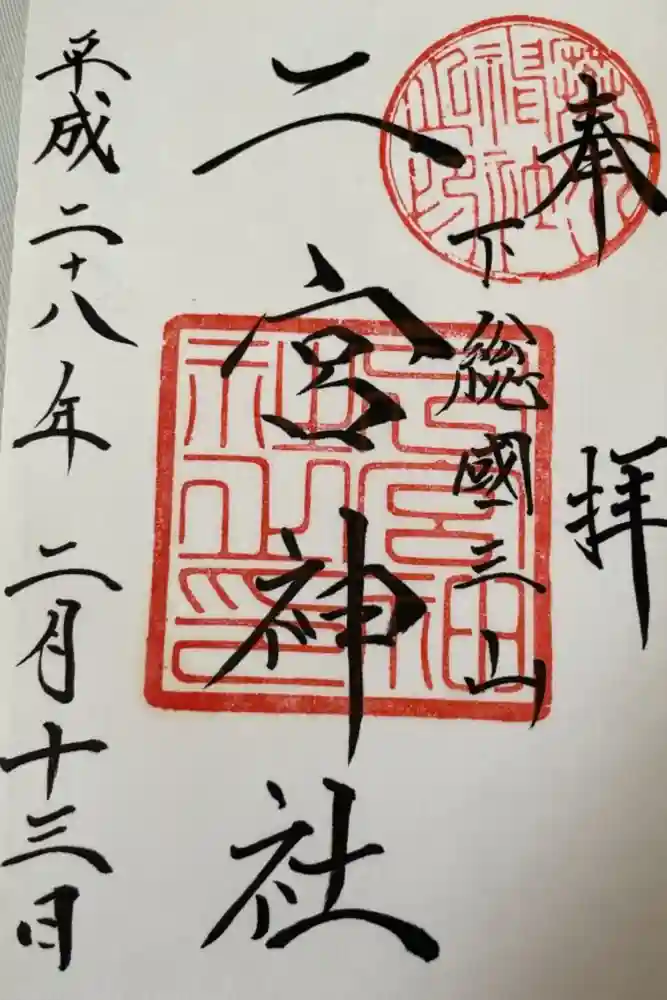 奉拝
下總國三山
二宮神社
平成二十八年二月十三日